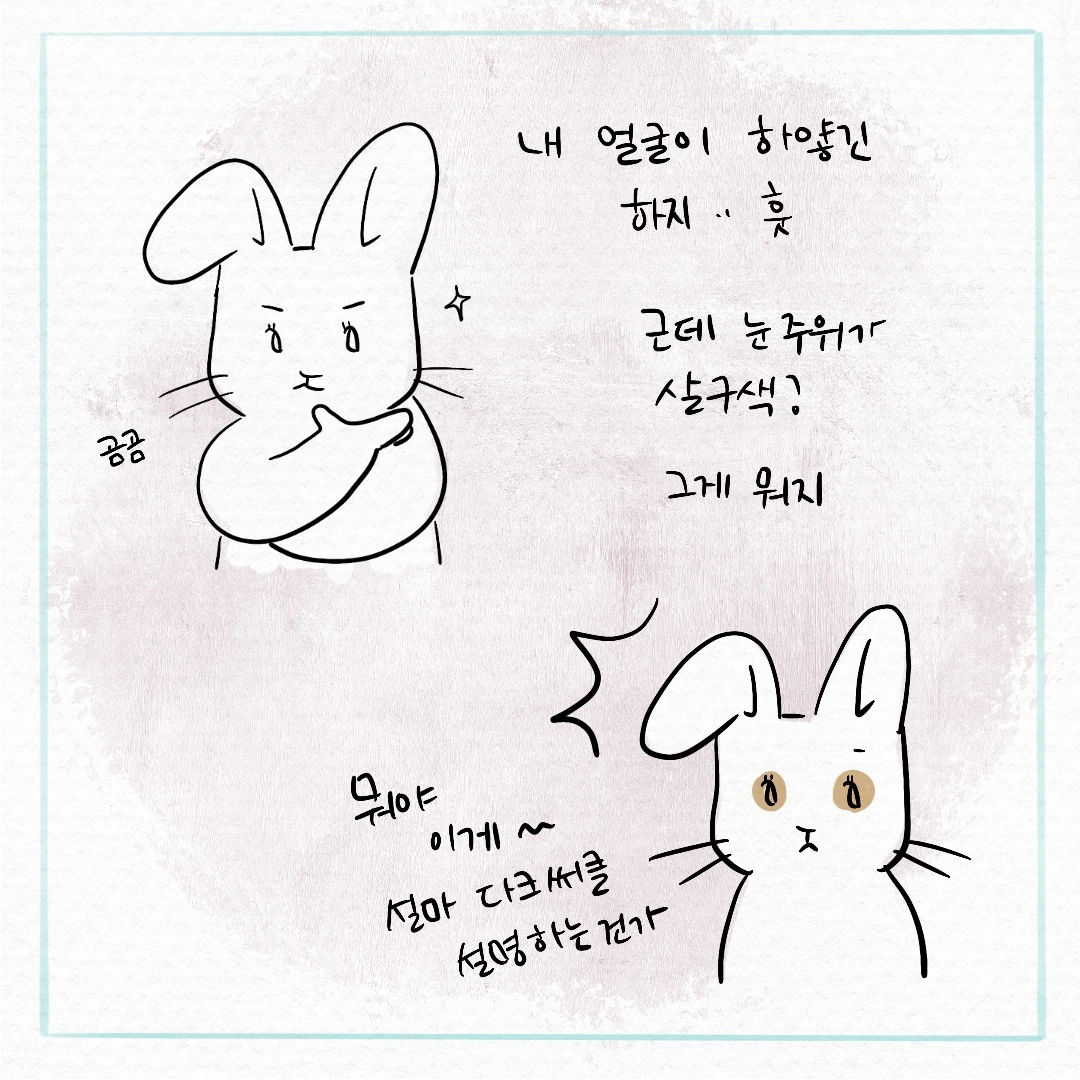 내 얼굴이 하얗긴
하지 .. 훗
근데 눈주위가
살구색?
그게 뭐지
곰곰
뭐야
이게 ~
설마 다크써클
설명하는건가